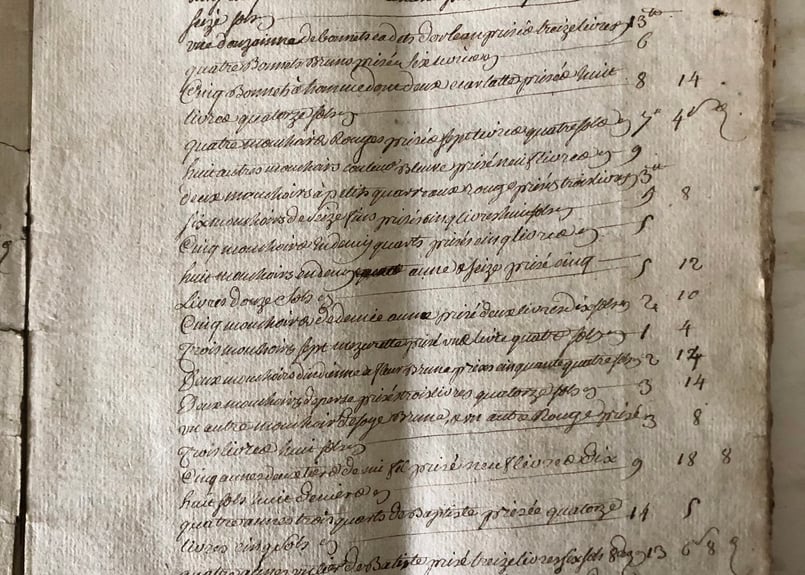 seize sols
une douzainne de bonnets cadets dorleau prisé treize livres 13 lt
quatre Bonnets Bruns prisé six livres 6
Cinq Bonnets à homme dont deux ecarlatte prisée huit
livres quatorze sols 8 14
quatre mouchoirs Rouges prisés sept livres quatre sols 7 lt 4 s
huit autres mouchoirs couleur Bleuve prisé neuf livres 9
deux mouchoirs à petits quarraux rouge prisés trois livres 3 lt
six mouchoirs de seize prisés cinq livres huit sols 5 8
Cinq mouchoirs en demy quarts prisé cinq livres 5
huit mouchoirs en aune & seize prisé cinq
Livres douze sols 5 12
Cinq mouchoirs de demie aune prisé deux livres dix sols 2 10
Trois mouchoirs sept prisé une livre quatre sols 1 4
Deux mouchoirs à fleur Brune prisés cinquante quatre sols 2 14
Deux mouchoirs de perse prisé trois livres quatorze sols 3 14
un autre mouchoir de soye Brune, & un autre Rouge prisé
Trois livres huit sols 3 8
Cinq aunes deux tiers de mi fil prisé neuf livres dix
huit sols huit deniers 9 18 8
quatre aunes trois quarts de Baptiste prisée quatorze
livres cinq sols 14 5
quatre aunes de Batiste prisé treize livres six sols 8 d 13 6 s 8 d